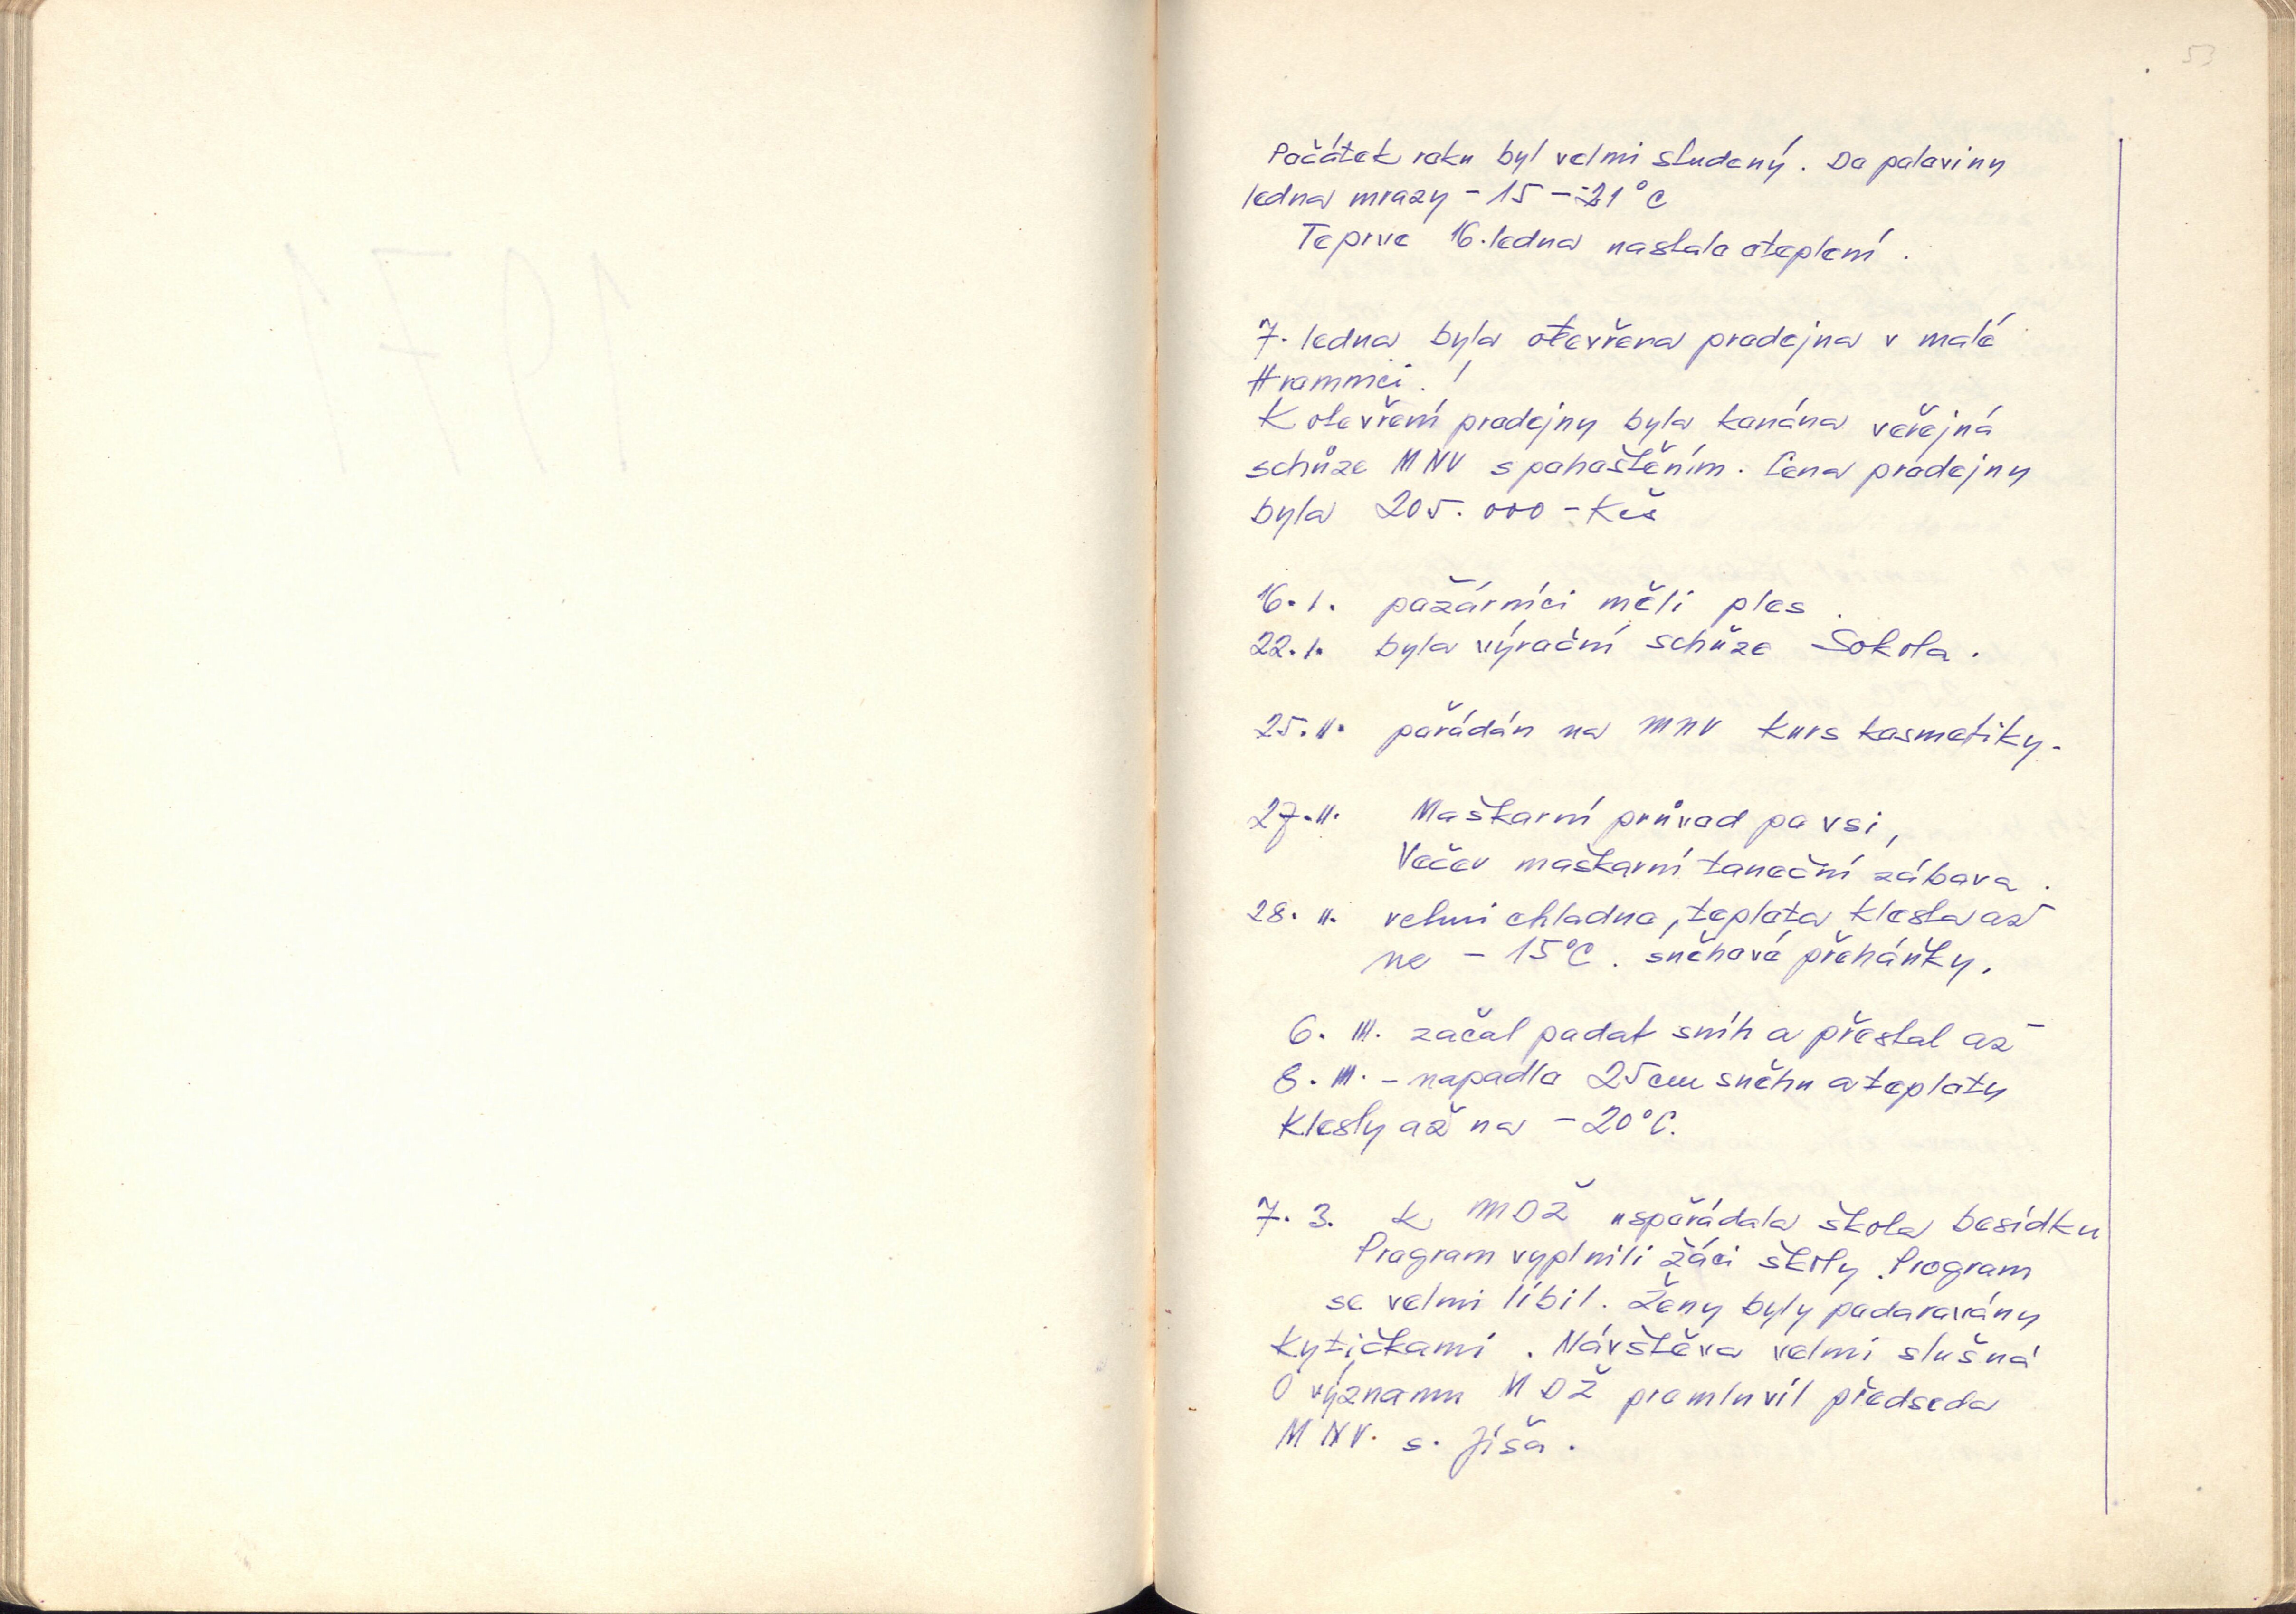 53
Počátek roku byl velmi studený. Do poloviny
ledna mrazy - 15 - -21°C
Teprve 16. ledna nastalo oteplení.
7. ledna byla otevřena prodejna v malé
Hrammici.!
K otevření prodejny byla konána veřejná
schůze MNV s pohoštěním. Cena prodejny
byla 205.000 - Kčs
16. I. požárníci měli ples.
22. I. byla výroční schůze Sokola.
25. II. pořádán na MNV kurs kosmetiky.
27. II. Maškarní průvod po vsi,
Večer maškarní taneční zábava.
28. II. velmi chladno, teplota klesla až
na - 15°C. sněhové přeháňky.
6. III. začal padat sníh a přestal až
8. III. - napadlo 25 cm sněhu a teploty
klesly až na - 20°C.
7. 3. K MDŽ uspořádala škola besídku
Program vyplnili žáci školy. Program
se velmi líbil. Ženy byly podarovány
kytičkami. Návštěva velmi slušná
O významu MDŽ promluvil předseda
MNV. s. Jíša.